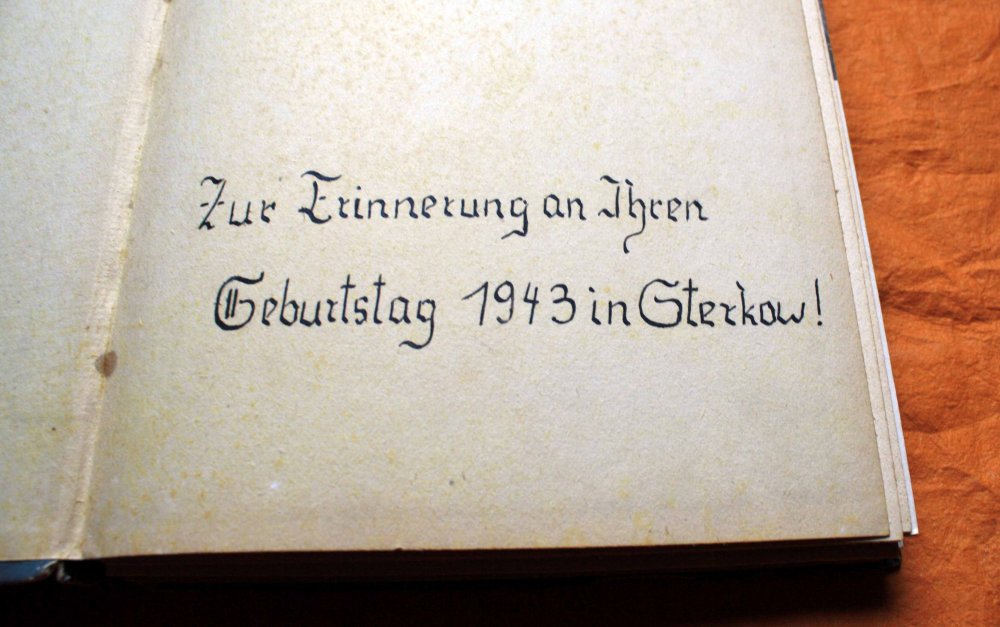 Zur Erinnerung an Ihren
Geburtstag 1943 in Sterkow!